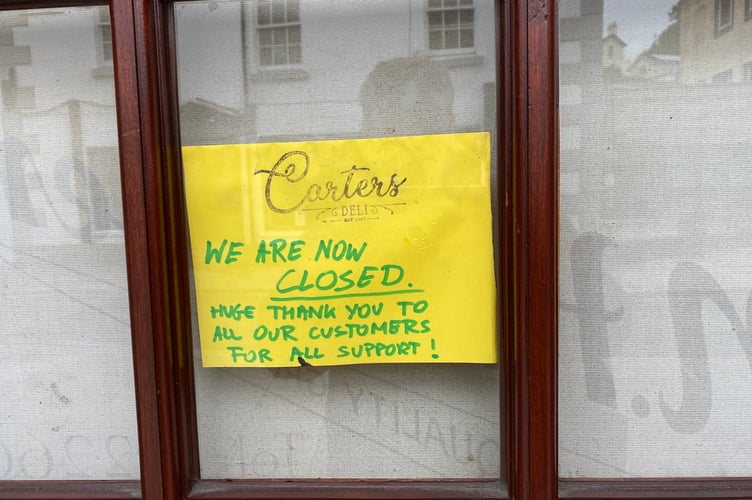 Carters
DELI
WE ARE NOW
CLOSED.
HUGE THANK YOU TO
ALL OUR CUSTOMERS
FOR ALL SUPPORT!
QUALITY